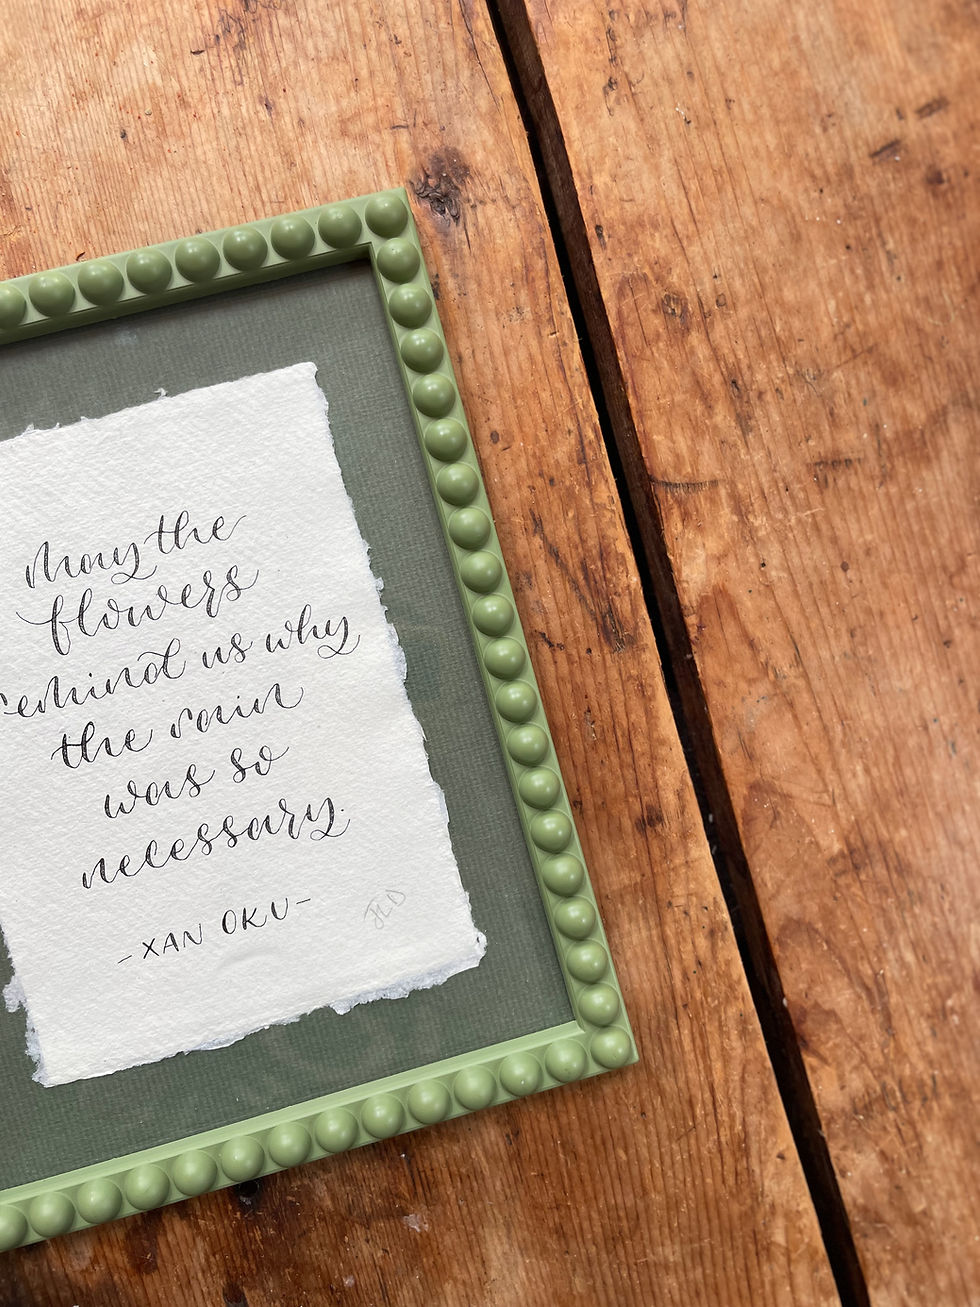 May the
flowers
remind us why
the rain
was so
necessary.
-XAN OKU-
JLD